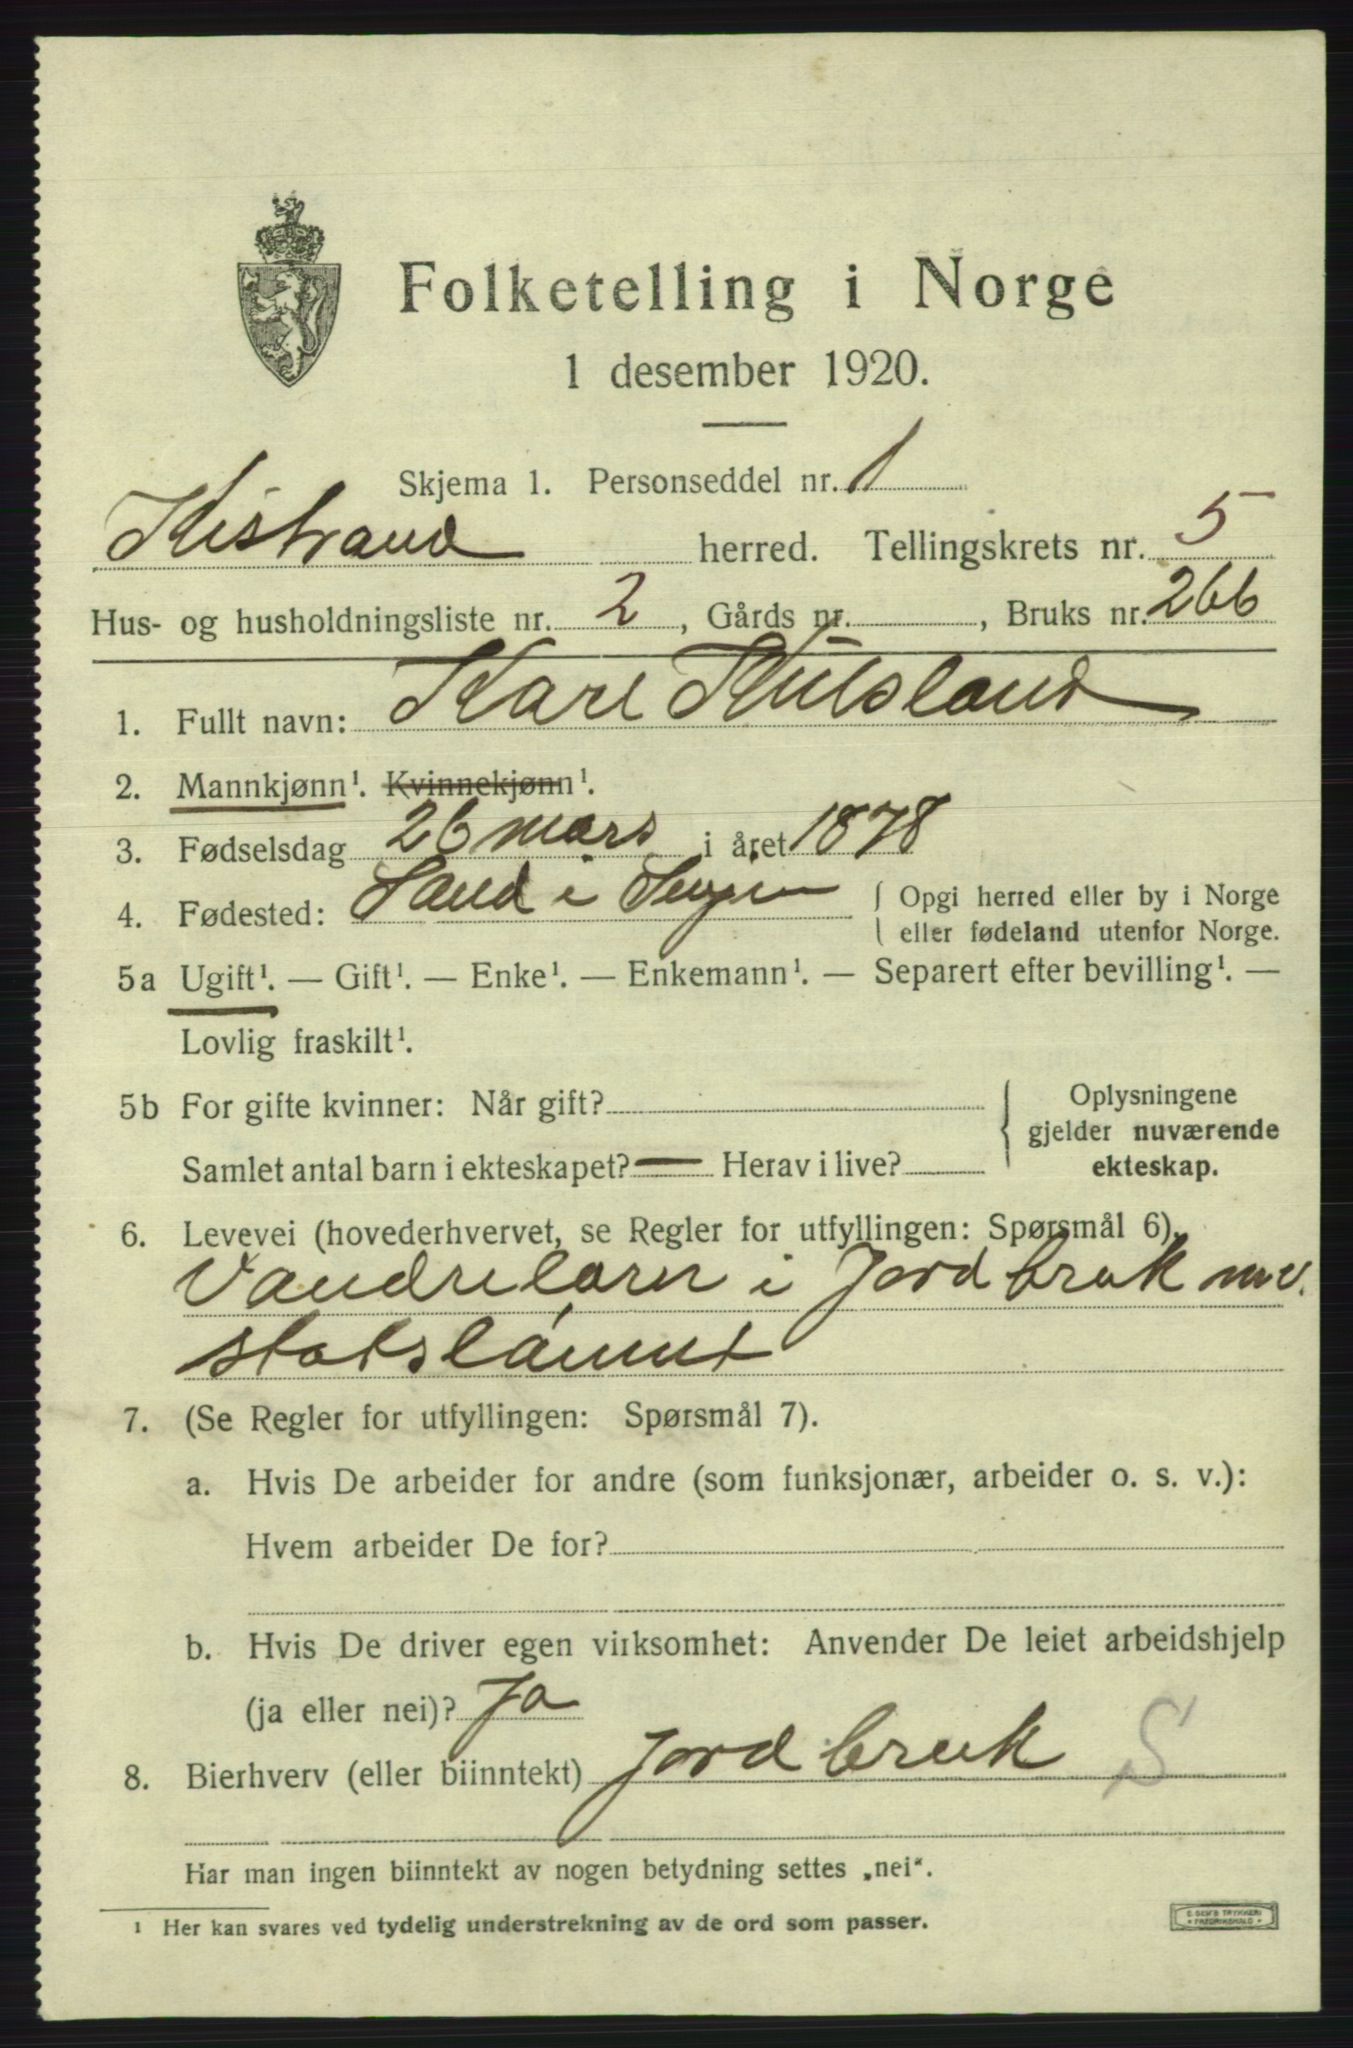 Folketelling i Norge
1 desember 1920.
Skjema 1. Personseddel nr. 1
Kistrand herred. Tellingskrets nr. 5
Hus- og husholdningsliste nr. 2, Gårds nr. , Bruks nr. 266
1. Fullt navn: Karl
2. Mannkjønn¹. Kvinnekjønn¹.
3. Fødselsdag 26 mars i året 1878
4. Fødested: Sand i
{ Opgi herred eller by i Norge
eller fødeland utenfor Norge.
5a Ugift¹. — Gift¹. — Enke¹. — Enkemann¹. — Separert efter bevilling¹. —
Lovlig fraskilt¹.
5b For gifte kvinner: Når gift?
Samlet antal barn i ekteskapet? — Herav i live?
{ Oplysningene
gjelder nuværende
ekteskap.
6. Levevei (hovederhvervet, se Regler for utfyllingen: Spørsmål 6).
Vandrelærer i Jordbruk m.v.
statslønnet
7. (Se Regler for utfyllingen: Spørsmål 7).
a. Hvis De arbeider for andre (som funksjonær, arbeider o. s. v.):
Hvem arbeider De for?
b. Hvis De driver egen virksomhet: Anvender De leiet arbeidshjelp
(ja eller nei)? Ja
8. Bierhverv (eller biinntekt) Jordbruk S
Har man ingen biinntekt av nogen betydning settes „nei“.
¹ Her kan svares ved tydelig understrekning av de ord som passer.